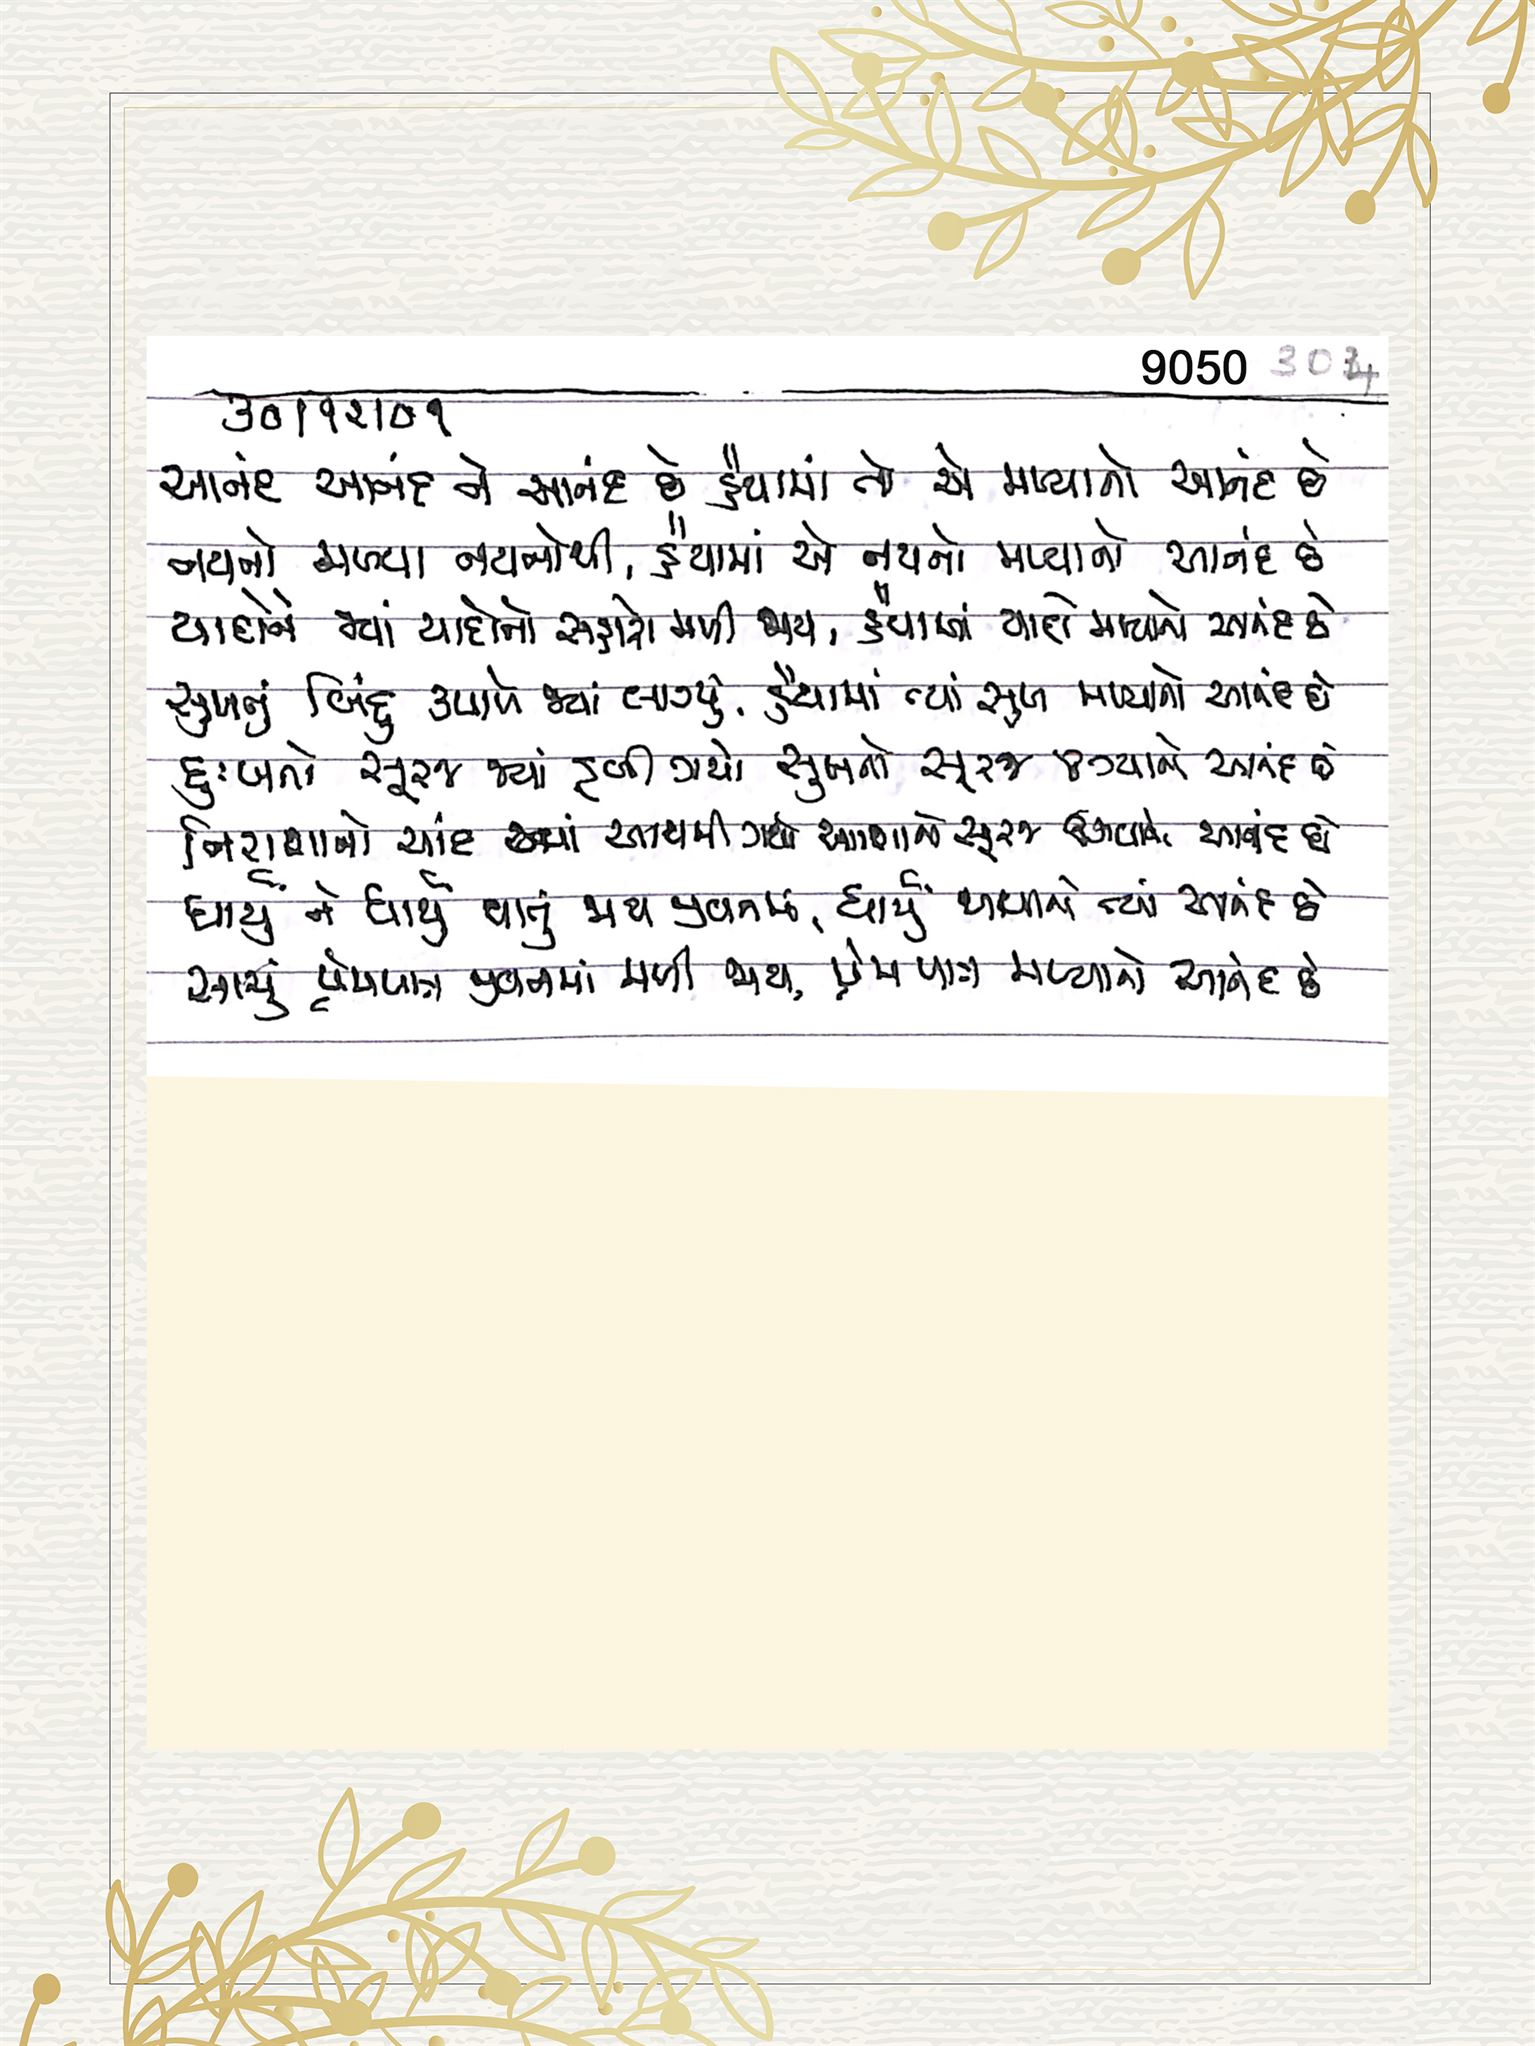 9050 304
૩૦/૧૨/૦૧
આનંદ આનંદ ને આનંદ છે હૈયામાં તો એ મળ્યાનો આનંદ છે
નયનો મળ્યા નયનોથી, હૈયામાં એ નયનો મળ્યાનો આનંદ છે
યાદોને જ્યાં યાદોનો સહારો મળી જાય, હૈયામાં યાદો મળ્યાનો આનંદ છે
સુખનું બિંદુ કપાળે જ્યાં લાગ્યું, હૈયામાં ત્યાં સુખ મળ્યાનો આનંદ છે
દુઃખનો સૂરજ જ્યાં ડૂબી ગયો સુખનો સૂરજ ઊગ્યાનો આનંદ છે
નિરાશાનો ચાંદ જ્યાં આથમી ગયો આશાનો સૂરજ ઊગ્યાનો આનંદ છે
ધાર્યું ને ધાર્યું થાતું જાય જીવનમાં, ધાર્યું થયાનો ત્યાં આનંદ છે
સાચું પ્રેમપાત્ર જીવનમાં મળી જાય, પ્રેમ પાત્ર મળ્યાનો આનંદ છે